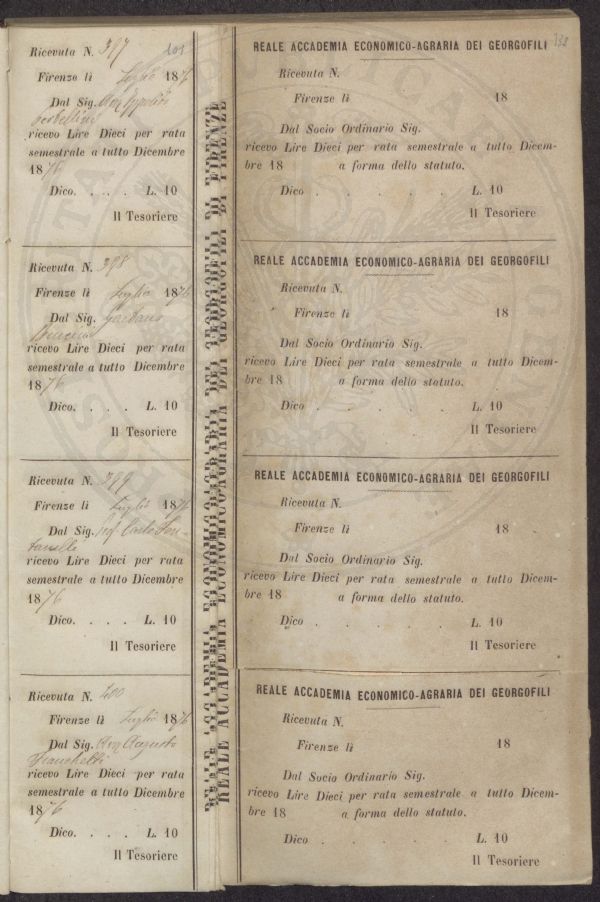 Ricevuta N. 397
101
Firenze lì Luglio 1876
Dal Sig.
ricevo Lire Dieci per rata
semestrale a tutto Dicembre
1876
Dico. . . . L. 10
Il Tesoriere
Ricevuta N. 398
Firenze lì Luglio 1876
Dal Sig. Gaetano
ricevo Lire Dieci per rata
semestrale a tutto Dicembre
1876
Dico. . . . L. 10
Il Tesoriere
Ricevuta N. 399
Firenze lì Luglio 1876
Dal Sig. Carlo Fon-
tanelli
ricevo Lire Dieci per rata
semestrale a tutto Dicembre
1876
Dico. . . . L. 10
Il Tesoriere
Ricevuta N. 400
Firenze lì Luglio 1876
Dal Sig. Augusto
Franchetti
ricevo Lire Dieci per rata
semestrale a tutto Dicembre
1876
Dico. . . . L. 10
Il Tesoriere
REALE ACCADEMIA ECONOMICO-AGRARIA DEI GEORGOFILI DI FIRENZE
REALE ACCADEMIA ECONOMICO-AGRARIA DEI GEORGOFILI DI FIRENZE
REALE ACCADEMIA ECONOMICO-AGRARIA DEI GEORGOFILI
Ricevuta N.
Firenze lì 18
Dal Socio Ordinario Sig.
ricevo Lire Dieci per rata semestrale a tutto Dicem-
bre 18 a forma dello statuto.
Dico . . . . . L. 10
Il Tesoriere
REALE ACCADEMIA ECONOMICO-AGRARIA DEI GEORGOFILI
Ricevuta N.
Firenze lì 18
Dal Socio Ordinario Sig.
ricevo Lire Dieci per rata semestrale a tutto Dicem-
bre 18 a forma dello statuto.
Dico . . . . . L. 10
Il Tesoriere
REALE ACCADEMIA ECONOMICO-AGRARIA DEI GEORGOFILI
Ricevuta N.
Firenze lì 18
Dal Socio Ordinario Sig.
ricevo Lire Dieci per rata semestrale a tutto Dicem-
bre 18 a forma dello statuto.
Dico . . . . . L. 10
Il Tesoriere
REALE ACCADEMIA ECONOMICO-AGRARIA DEI GEORGOFILI
Ricevuta N.
Firenze lì 18
Dal Socio Ordinario Sig.
ricevo Lire Dieci per rata semestrale a tutto Dicem-
bre 18 a forma dello statuto.
Dico . . . . . L. 10
Il Tesoriere